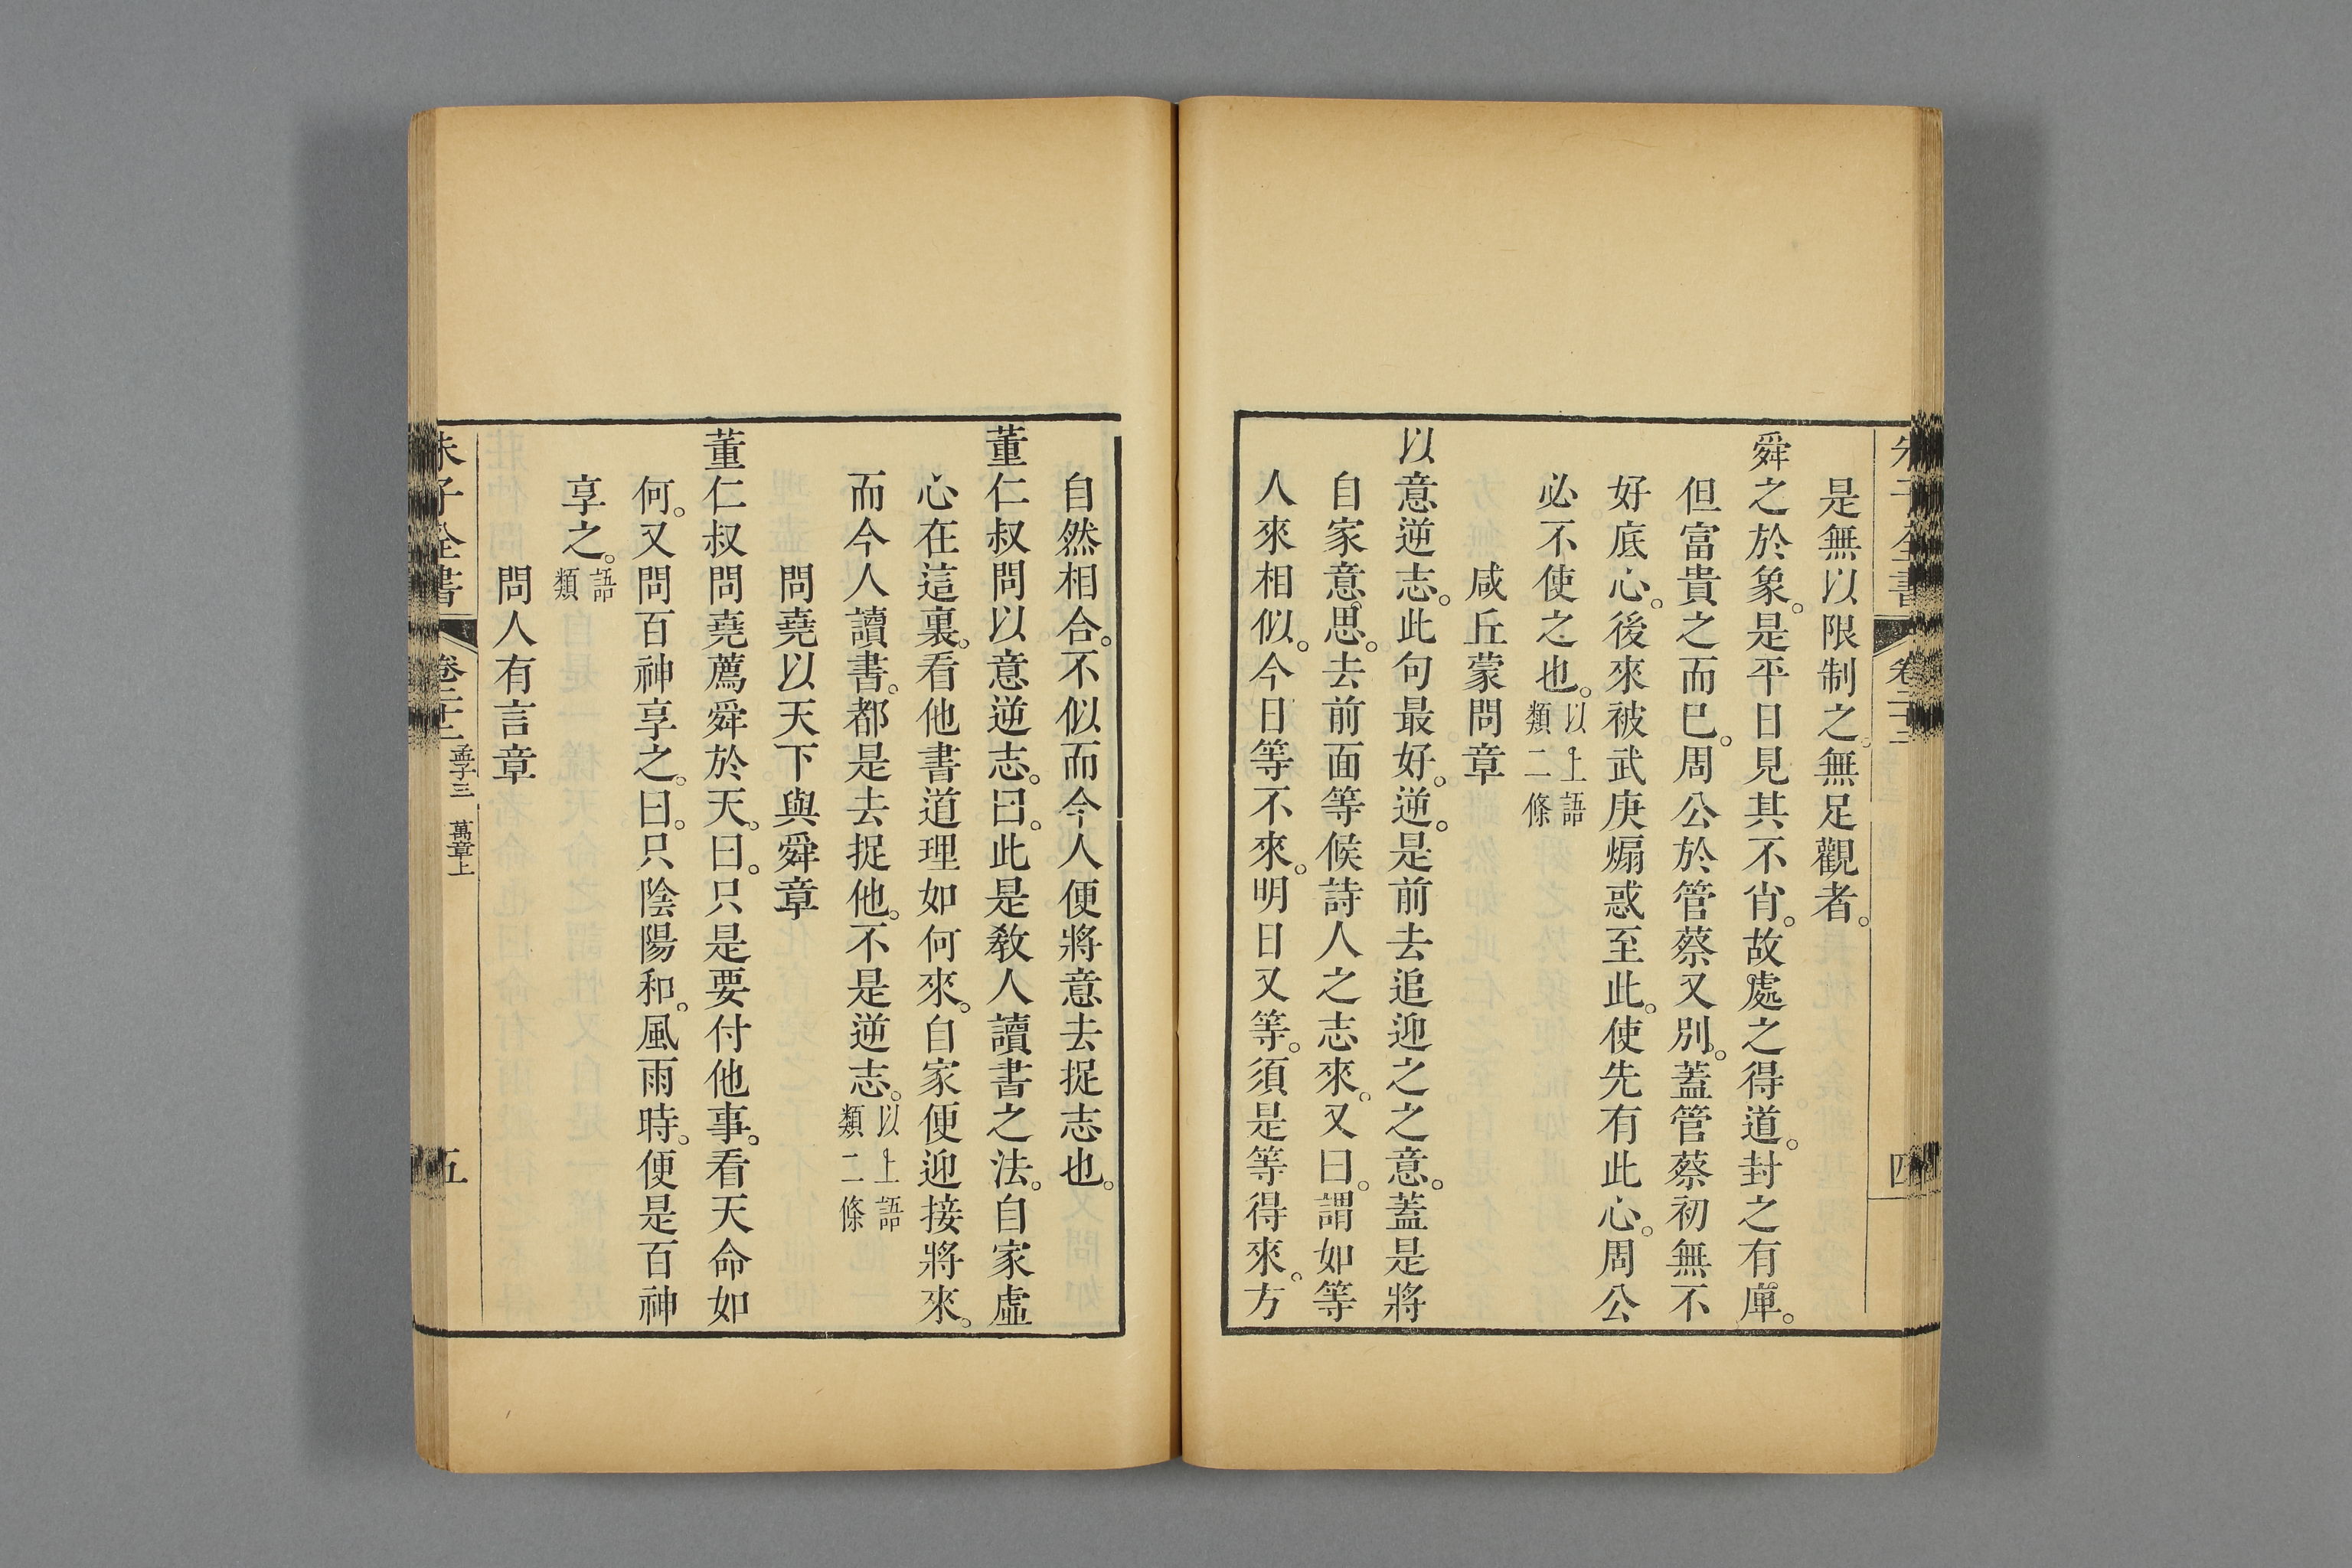 朱子全書 卷二十二 四
是無以限制之。無足觀者。
舜之於象。是平日見其不肖。故處之得道。封之有庳。
但富貴之而已。周公於管蔡又別。蓋管蔡初無不
好底心。後來被武庚煽惑至此。使先有此心。周公
必不使之也。以上語類二條
咸丘蒙問章
以意逆志。此句最好。逆。是前去追迎之之意。蓋是將
自家意思。去前面等候詩人之志來。又曰。謂如等
人來相似。今日等不來。明日又等。須是等得來。方
自然相合。不似而今人便將意去捉志也。
董仁叔問以意逆志。曰。此是敎人讀書之法。自家虛
心在這裏。看他書道理如何來。自家便迎接將來。
而今人讀書。都是去捉他。不是逆志。以上語類二條
問堯以天下與舜章
董仁叔問堯薦舜於天。曰。只是要付他事。看天命如
何。又問百神享之。曰。只陰陽和。風雨時。便是百神
享之。語類
問人有言章
朱子全書 卷二十二 孟子三 萬章上 五